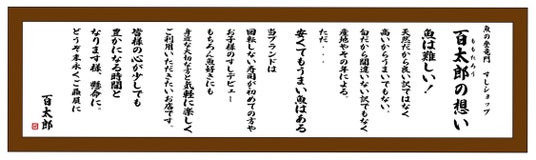 魚の登竜門 すしショップ
百太郎の想い
ももたろう
魚は難しい！
天然だから良い訳ではなく
高いからうまいでもない、
旬だから間違いない訳でもなく
産地やその年による。
ただ・・・
安くてもうまい魚はある
当ブランドは
回転しない寿司が初めての方や
お子様のすしデビュー
もちろん魚好きにも
身近な大切な方と気軽に楽しく
ご利用いただきたいお店です。
皆様の心が少しでも
豊かになる時間と
なります様、懸命に。
どうぞ末永くご贔屓に
百太郎